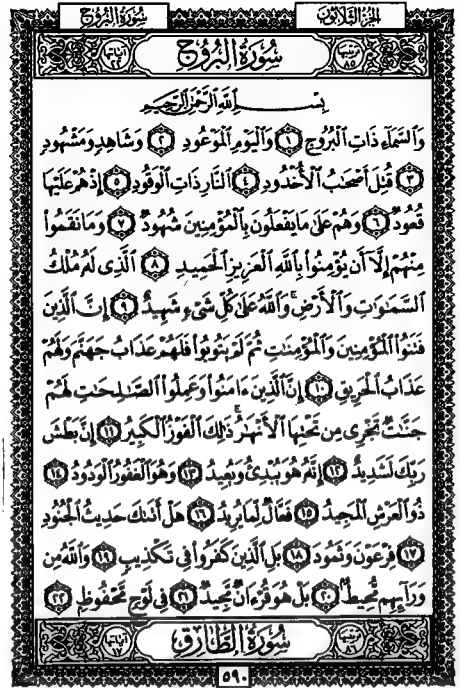 سُورَةُ البُرُوج
الجزء الثلاثون
ترتيبها ٨٥
سُورَةُ البُرُوج
آياتها ٢٢
بِسْمِ اللَّهِ الرَّحْمَٰنِ الرَّحِيمِ
وَالسَّمَاءِ ذَاتِ الْبُرُوجِ ١ وَالْيَوْمِ الْمَوْعُودِ ٢ وَشَاهِدٍ وَمَشْهُودٍ
٣ قُتِلَ أَصْحَابُ الْأُخْدُودِ ٤ النَّارِ ذَاتِ الْوَقُودِ ٥ إِذْ هُمْ عَلَيْهَا
قُعُودٌ ٦ وَهُمْ عَلَىٰ مَا يَفْعَلُونَ بِالْمُؤْمِنِينَ شُهُودٌ ٧ وَمَا نَقَمُوا
مِنْهُمْ إِلَّا أَن يُؤْمِنُوا بِاللَّهِ الْعَزِيزِ الْحَمِيدِ ٨ الَّذِي لَهُ مُلْكُ
السَّمَاوَاتِ وَالْأَرْضِ ۚ وَاللَّهُ عَلَىٰ كُلِّ شَيْءٍ شَهِيدٌ ٩ إِنَّ الَّذِينَ
فَتَنُوا الْمُؤْمِنِينَ وَالْمُؤْمِنَاتِ ثُمَّ لَمْ يَتُوبُوا فَلَهُمْ عَذَابُ جَهَنَّمَ وَلَهُمْ
عَذَابُ الْحَرِيقِ ١٠ إِنَّ الَّذِينَ ءَامَنُوا وَعَمِلُوا الصَّالِحَاتِ لَهُمْ
جَنَّاتٌ تَجْرِي مِن تَحْتِهَا الْأَنْهَارُ ۚ ذَٰلِكَ الْفَوْزُ الْكَبِيرُ ١١ إِنَّ بَطْشَ
رَبِّكَ لَشَدِيدٌ ١٢ إِنَّهُ هُوَ يُبْدِئُ وَيُعِيدُ ١٣ وَهُوَ الْغَفُورُ الْوَدُودُ ١٤
ذُو الْعَرْشِ الْمَجِيدُ ١٥ فَعَّالٌ لِّمَا يُرِيدُ ١٦ هَلْ أَتَاكَ حَدِيثُ الْجُنُودِ
١٧ فِرْعَوْنَ وَثَمُودَ ١٨ بَلِ الَّذِينَ كَفَرُوا فِي تَكْذِيبٍ ١٩ وَاللَّهُ مِن
وَرَائِهِم مُّحِيطٌ ٢٠ بَلْ هُوَ قُرْءَانٌ مَّجِيدٌ ٢١ فِي لَوْحٍ مَّحْفُوظٍ ٢٢
ترتيبها ٨٦
سُورَةُ الطَّارِقِ
آياتها ١٧
٥٩٠